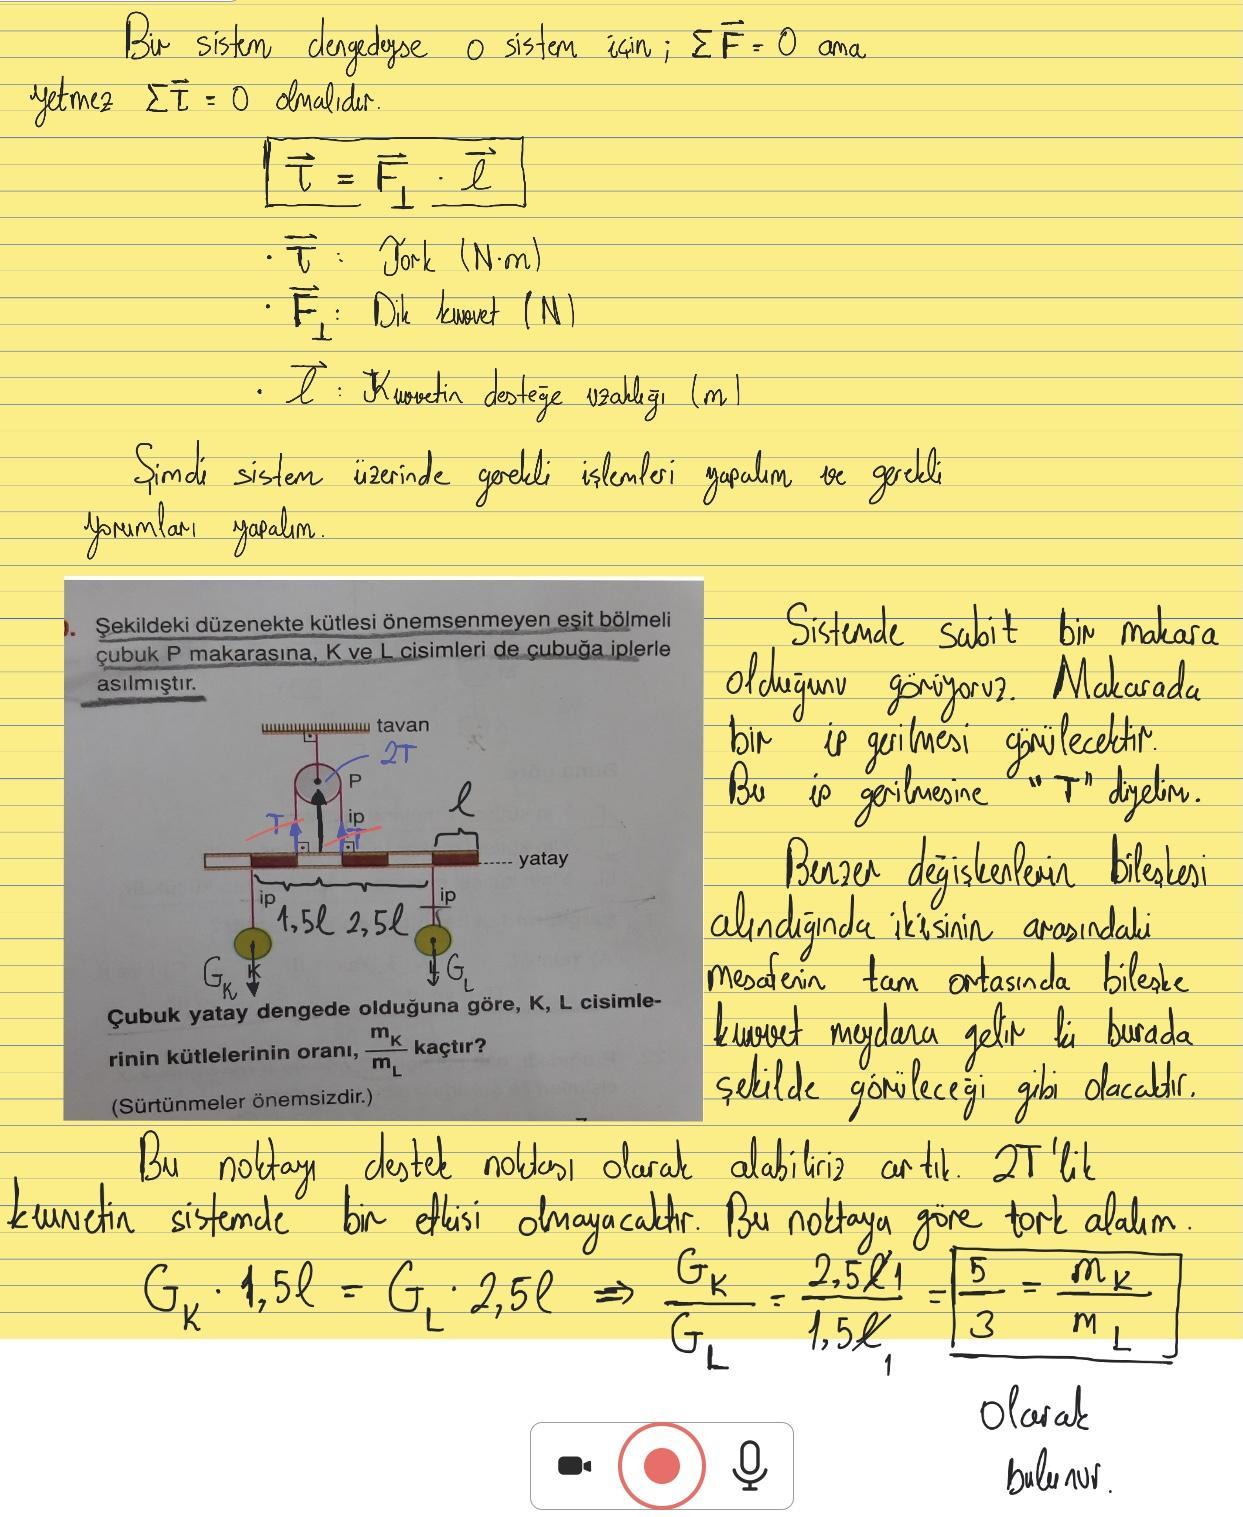 Bir sistem dengedeyse o sistem için; ΣF⃗ = 0 ama
yetmez Στ⃗ = 0 olmalıdır.
τ⃗ = F⃗⊥ · l⃗
· τ⃗ : Tork (N·m)
· F⃗⊥ : Dik kuvvet (N)
· l⃗ : Kuvvetin desteğe uzaklığı (m)
Şimdi sistem üzerinde gerekli işlemleri yapalım ve gerekli
yorumları yapalım.
Şekildeki düzenekte kütlesi önemsenmeyen eşit bölmeli
çubuk P makarasına, K ve L cisimleri de çubuğa iplerle
asılmıştır.
tavan
2T
P
l
T ip T
yatay
ip ip
1,5l 2,5l
G_K K L G_L
Çubuk yatay dengede olduğuna göre, K, L cisimle-
rinin kütlelerinin oranı, m_K / m_L kaçtır?
(Sürtünmeler önemsizdir.)
Sistemde sabit bir makara
olduğunu görüyoruz. Makarada
bir ip gerilmesi görülecektir.
Bu ip gerilmesine "T" diyelim.
Benzer değişkenlerin bileşkesi
alındığında ikisinin arasındaki
mesafenin tam ortasında bileşke
kuvvet meydana gelir ki burada
şekilde görüleceği gibi olacaktır.
Bu noktayı destek noktası olarak alabiliriz artık. 2T'lik
kuvvetin sistemde bir etkisi olmayacaktır. Bu noktaya göre tork alalım.
G_K · 1,5l = G_L · 2,5l ⇒ G_K / G_L = 2,5l 1 / 1,5l 1 = 5/3 = m_K / m_L
olarak
bulunur.